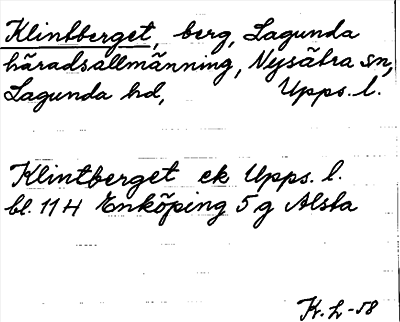 Klintberget, berg, Lagunda
häradsallmänning, Nysätra sn,
Lagunda hd, Upps. l.
Klintberget ek Upps. l.
bl. 11 H Enköping 5 g Alsta
K. L -58